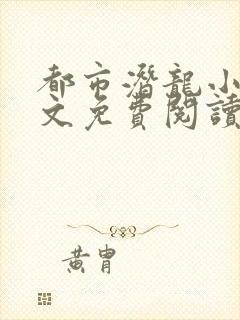 都市潛龍小
文免費閱讀
黃胄